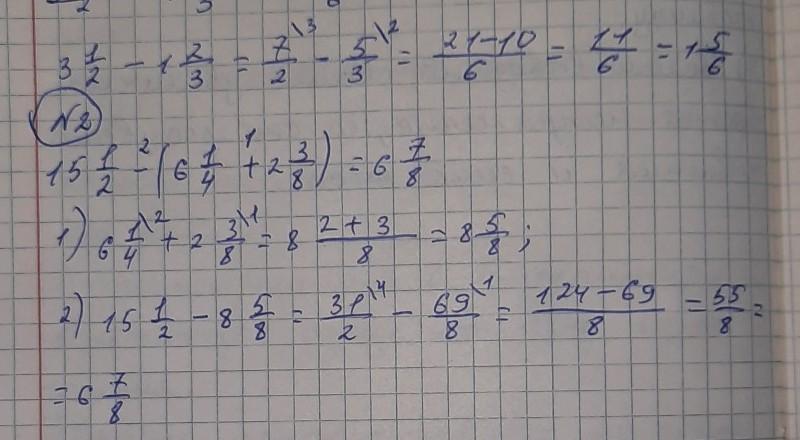 2 3 6
3 1/2 - 1 2/3 = 7\3/2 - 5\2/3 = 21-10/6 = 11/6 = 1 5/6
N2
15 1/2 -² (6 1/4 +¹ 2 3/8) = 6 7/8
1) 6 1\2/4 + 2 3\1/8 = 8 2+3/8 = 8 5/8;
2) 15 1/2 - 8 5/8 = 31\4/2 - 69\1/8 = 124-69/8 = 55/8 =
= 6 7/8